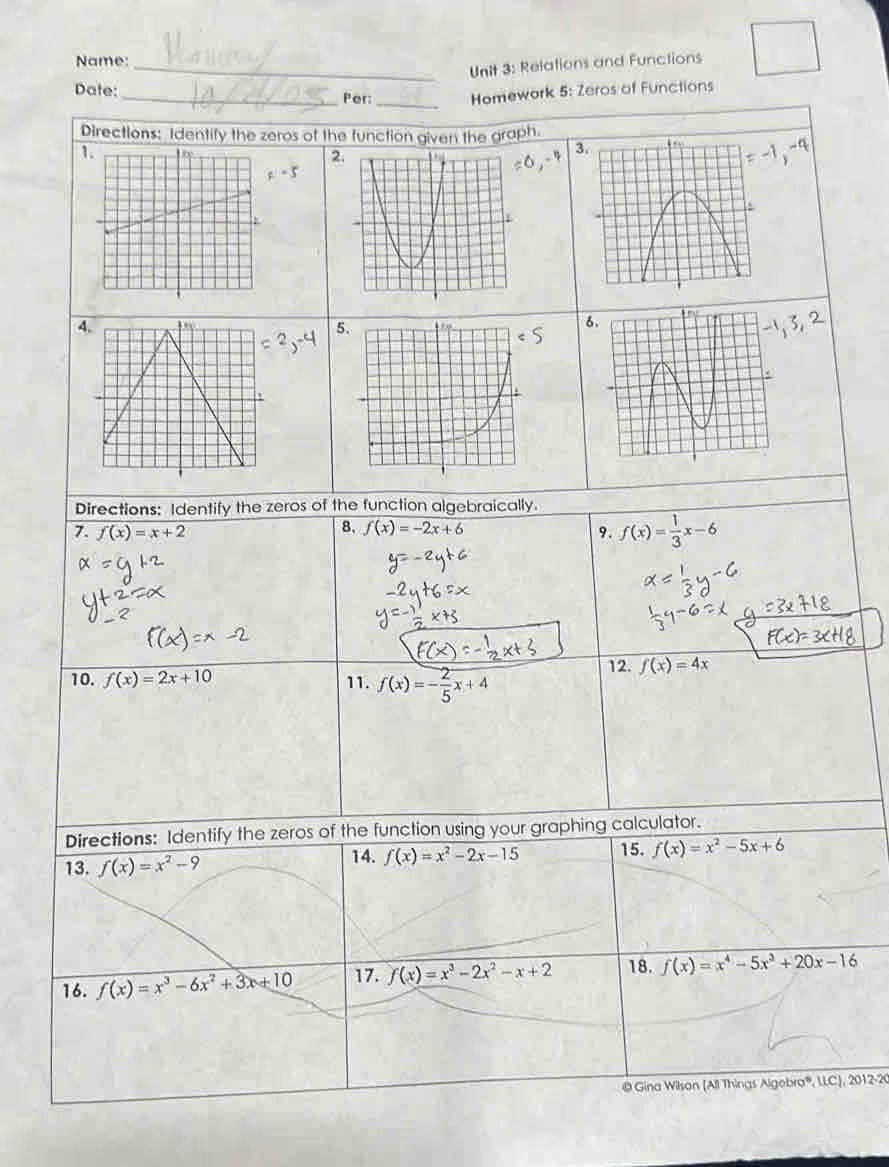 Name:
Unit 3: Relations and Functions
Date: Per:
Homework 5: Zeros of Functions
Directions: Identify the zeros of the function given the graph.
1. = -5
2. = 0, -4
3. = -1, -9
4. = 2, -4
5. = 5
6. -1, 3, 2
Directions: Identify the zeros of the function algebraically.
7. f(x) = x + 2
x = y + 2
y + 2 = x
-2
F(x) = x - 2
8. f(x) = -2x + 6
y = -2y + 6
-2y + 6 = x
y = -1/2 x + 3
F(x) = -1/2 x + 3
9. f(x) = 1/3 x - 6
x = 1/3 y - 6
1/3 y - 6 = x y = 3x + 18
F(x) = 3x + 18
10. f(x) = 2x + 10
11. f(x) = -2/5 x + 4
12. f(x) = 4x
Directions: Identify the zeros of the function using your graphing calculator.
13. f(x) = x² - 9
14. f(x) = x² - 2x - 15
15. f(x) = x² - 5x + 6
16. f(x) = x³ - 6x² + 3x + 10
17. f(x) = x³ - 2x² - x + 2
18. f(x) = x⁴ - 5x³ + 20x - 16
© Gina Wilson (All Things Algebra®, LLC), 2012-20